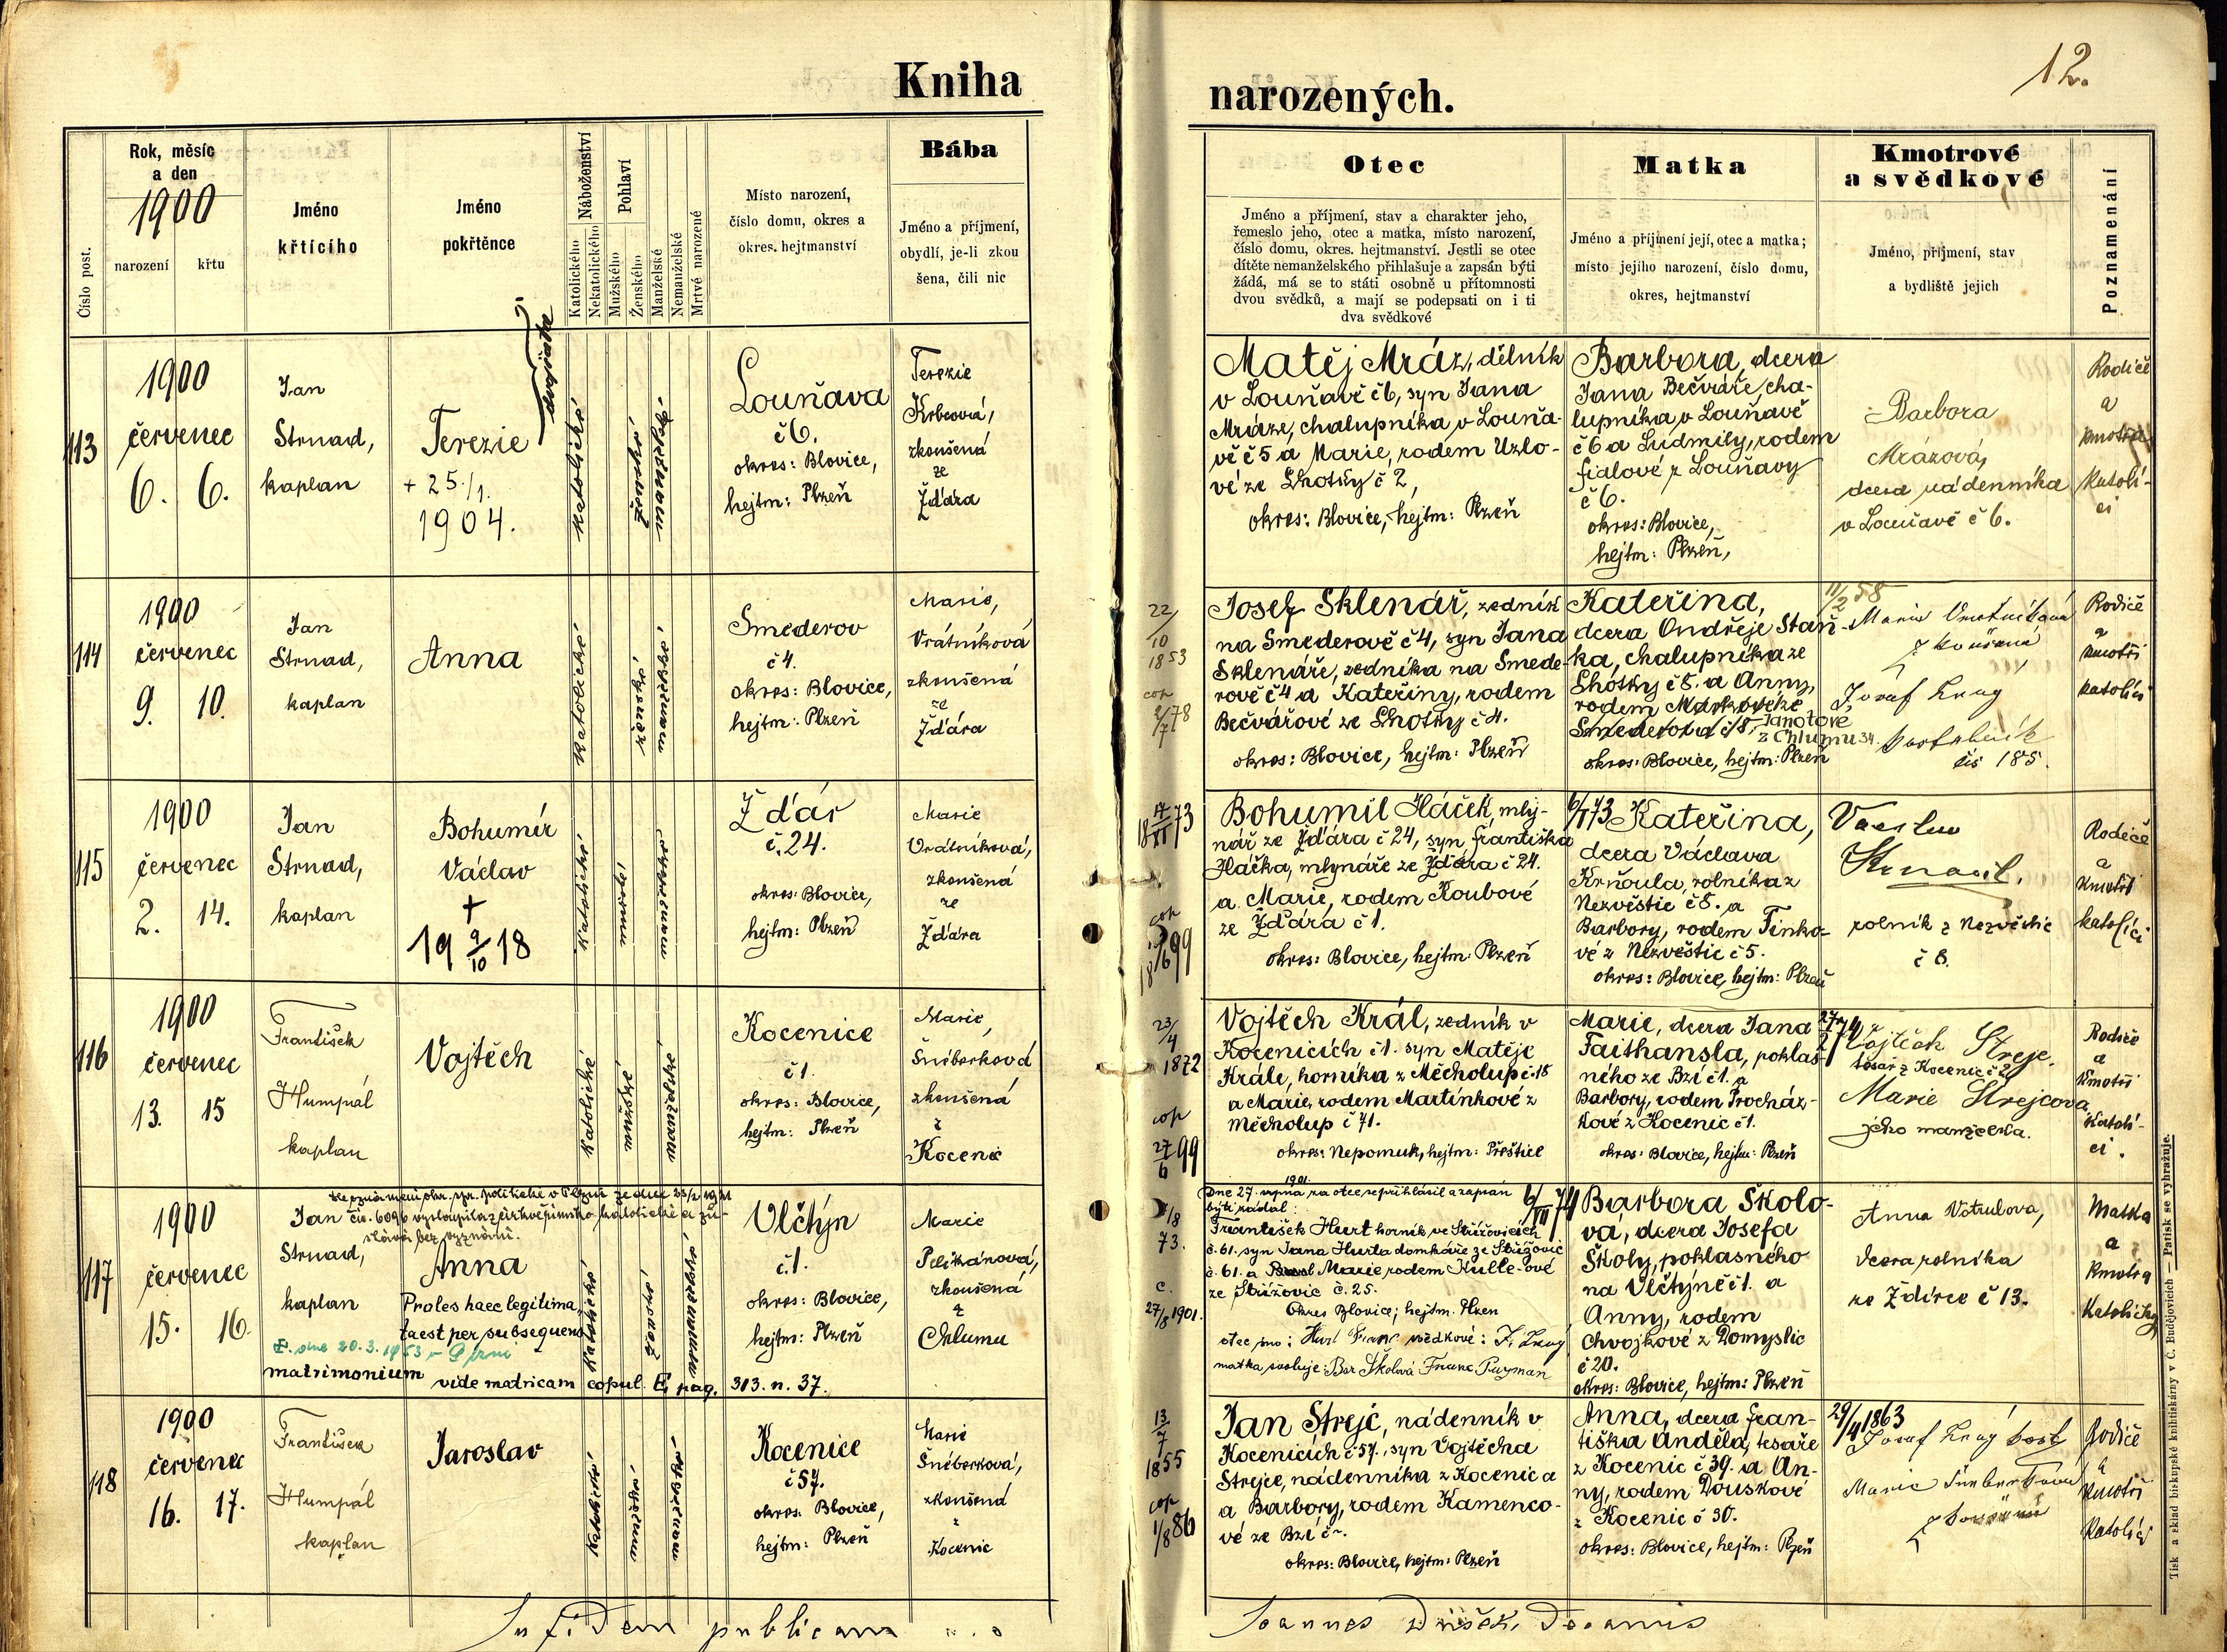 Kniha
narozených.
12.
Číslo post.
Rok, měsíc
a den
1900
narození
křtu
Jméno
křtícího
Jméno
pokřtěnce
Náboženství
Katolického
Nekatolického
Pohlaví
Mužského
Ženského
Manželské
Nemanželské
Mrtvě narozené
Místo narození,
číslo domu, okres a
okres. hejtmanství
Bába
Jméno a příjmení,
obydlí, je-li zkou
šena, čili nic
Otec
Jméno a příjmení, stav a charakter jeho,
řemeslo jeho, otec a matka, místo narození,
číslo domu, okres. hejtmanství. Jestli se otec
dítěte nemanželského přihlašuje a zapsán býti
žádá, má se to státi osobně u přítomnosti
dvou svědků, a mají se podepsati on i ti
dva svědkové
Matka
Jméno a příjmení její, otec a matka;
místo jejího narození, číslo domu,
okres, hejtmanství
Kmotrové
a svědkové
Jméno, příjmení, stav
a bydliště jejich
Poznamenání
113
1900
červenec
6. 6.
Jan
Strnad,
kaplan
Terezie
dvojčata
+ 25./1.
1904.
katolické
ženské,
manželské,
Louňava
č 6.
okres: Blovice,
hejtm: Plzeň
Terezie
Krbcová,
zkoušená
ze
Žďára
Matěj Mráz, dělník
v Louňavě č 6, syn Jana
Mráze, chalupníka v Louňa-
vě č 5 a Marie, rodem Uzlo-
vé ze Lhotky č 2,
okres: Blovice, hejtm: Plzeň
Barbora, dcera
Jana Bečváře, cha-
lupníka v Louňavě
č 6 a Ludmily, rodem
fialové z Louňavy
č 6.
okres: Blovice,
hejtm: Plzeň,
Barbora
Mrázová,
dcera nádenníka
v Louňavě č 6.
Rodiče
a
kmotra
katolí-
ci
114
1900
červenec
9. 10.
Jan
Strnad,
kaplan
Anna
katolické
ženské,
manželské,
Smederov
č 4.
okres: Blovice,
hejtm: Plzeň
Marie,
Vrátníková
zkoušená
ze
Žďára
22/
10
1853
cop
2/7 78
Josef Sklenář, zedník
na Smederově č 4, syn Jana
Sklenáře, zedníka na Smede-
rově č 4 a Kateřiny, rodem
Bečvářové ze Lhotky č 4.
okres: Blovice, hejtm: Plzeň
Kateřina,
dcera Ondřeje Staň-
ka, chalupníka ze
Lhotky č 8. a Anny,
rodem
Smederova
Janotové
z Chlumu 34.
okres: Blovice, hejtm: Plzeň
11/2 58
Marie Vrátníková
zkoušená
Josef Krug
kostelník
čís 185.
Rodiče
a
kmotři
katolíci
115
1900
červenec
2. 14.
Jan
Strnad,
kaplan
Bohumír
Václav
+
19 9/10 18
katolické
mužské,
manželské,
Žďár
č. 24.
okres: Blovice,
hejtm: Plzeň
Marie
Vrátníková,
zkoušená
ze
Žďára
18 17/XI 73
cop
Bohumil Háček, mly-
nář ze Žďára č 24, syn františka
Háčka, mlynáře ze Žďára č 24.
a Marie, rodem Koubové
ze Žďára č 1.
okres: Blovice, hejtm: Plzeň
Kateřina,
dcera Václava
Krňoula, rolníka z
Nezvěstic č 8. a
Barbory, rodem Tinko-
vé z Nezvěstic č 5.
okres: Blovice, hejtm: Plzeň
Václav
rolník z Nezvěstic
č 8.
Rodiče
a
kmotři
katolíci
116
1900
červenec
13. 15
František
Humpál
kaplan
Vojtěch
katolické
mužské,
manželské,
Kocenice
č 1.
okres: Blovice,
hejtm: Plzeň
Marie,
Šnéberková
zkoušená
z
Kocenic
23/
4
1872
cop
27/6 99
Vojtěch Král, zedník v
Kocenicích č 1. syn Matěje
Krále, horníka z Měcholup č. 18
a Marie, rodem Martínkové z
Měcholup č 71.
okres: Nepomuk, hejtm: Přeštice
Marie, dcera Jana
Faithansla, pohlas-
ného ze Bzí č 1. a
Barbory, rodem Procház-
kové z Kocenic č 1.
okres: Blovice, hejtm: Plzeň
27/2 74
Vojtěch Strejc
tesař z Kocenic č 2
Marie Strejcova
jeho manželka.
Rodiče
a
kmotři
katolí-
ci.
117
1900
červenec
15. 16.
Jan
Strnad,
kaplan
čís. 6096 vystoupila z církve římsko katolické a zů-
stává bez vyznání.
Anna
Proles haec legitima
ta est per subsequens
dne 20. 3. 1953
matrimonium
vide matricam copul. E, pag. 313. n. 37.
katolické
ženské,
nemanželské,
Vlčtýn
č. 1.
okres: Blovice,
hejtm: Plzeň
Marie
Pelikánová,
zkoušená
z
Chlumu
73.
c.
27/8 1901.
1901
Dne 27. srpna za otce se přihlásil a zapsán
býti žádal:
František Hurt horník ve Střížovicích
č. 61. syn Jana Hurta domkáře ze Střížovic
č. 61. a Marie rodem Kulle-ové
ze Střížovic č. 25.
Okres Blovice; hejtm. Plzen
otec jsou: Hurt Franc svědkové: J. Krug
matka svoluje: Bar Školová Franc. Puzman
6/III 74
Barbora Školo-
vá, dcera Josefa
Školy, pohlasného
na Vlčtýně č 1. a
Anny, rodem
Chvojkové z Domyslic
č 20.
okres: Blovice, hejtm: Plzeň
Anna Votrubova,
dcera rolníka
ze Ždírce č 13.
Matka
a
kmotra
katoličky
118
1900
červenec
16. 17.
František
Humpál
kaplan
Jaroslav
katolické
mužské,
manželské,
Kocenice
č 57.
okres: Blovice,
hejtm: Plzeň
Marie
Šnéberková,
zkoušená
z
Kocenic
13/
7
1855
cop
1/8 86
Jan Strejc, nádenník v
Kocenicích č 57., syn Vojtěcha
Strejce, nádenníka z Kocenic a
a Barbory, rodem Kamenco-
vé ze Bzí č ~.
okres: Blovice, hejtm: Plzeň
Anna, dcera fran-
tiška Anděla, tesaře
z Kocenic č 39. a An-
ny, rodem Douskové
z Kocenic č 30.
okres: Blovice, hejtm: Plzeň
29/4 1863
Josef Krug kost
Marie
zkoušená
Rodiče
a
kmotři
katolíci
In fidem publicam
Joannes Dušek, Decanus
Tisk a sklad biskupské knihtiskárny v Č. Budějovicích — Patisk se vyhražuje.